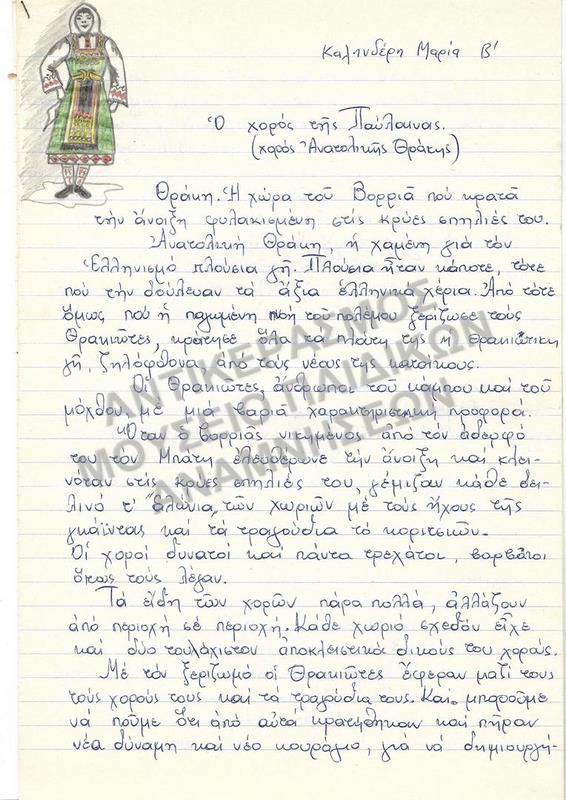 1
Καλινδέρη Μαρία Β'
Ὁ χορός τῆς Παύλαινας.
(χορός Ἀνατολικῆς Θράκης)
Θράκη. Ἡ χώρα τοῦ Βορριᾶ πού κρατᾶ
τήν ἄνοιξη φυλακισμένη στίς κρύες σπηλιές του.
Ἀνατολική Θράκη, ἡ χαμένη γιά τόν
Ἑλληνισμό πλούσια γῆ. Πλούσια ἦταν κάποτε, τότε
πού τήν δούλευαν τά ἄξια ἑλληνικά χέρια. Ἀπό τότε
ὅμως πού ἡ παγωμένη πνοή τοῦ πολέμου ξερίζωσε τούς
Θρακιῶτες, κράτησε ὅλα τά πλούτη της ἡ Θρακιώτικη
γῆ, ζηλόφθονα ἀπό τούς νέους της κατοίκους.
Οἱ Θρακιῶτες, ἄνθρωποι τοῦ κάμπου καί τοῦ
μόχθου, μέ μιά βαριά χαρακτηριστική προφορά.
Ὅταν ὁ βορριᾶς νικημένος ἀπό τόν ἀδερφό
του τόν Μπάτη ἐλευθέρωνε τήν ἄνοιξη καί κλει-
νόταν στίς κρύες σπηλιές του, γέμιζαν κάθε δει-
λινό τ' ἁλώνια τῶν χωριῶν μέ τούς ἤχους τῆς
γκάϊντας καί τά τραγούδια τό κοριτσιῶν.
Οἱ χοροί δυνατοί καί πάντα τρεχάτοι, βαρβάτοι
ὅπως τούς λέγαν.
Τά εἴδη τῶν χορῶν πάρα πολλά, ἀλλάζουν
ἀπό περιοχή σέ περιοχή. Κάθε χωριό σχεδόν εἶχε
καί δύο τουλάχιστον ἀποκλειστικά δικούς του χορούς.
Μέ τόν ξεριζωμό οἱ Θρακιῶτες ἔφεραν μαζί τους
τούς χορούς τους καί τά τραγούδια τους. Καί μποροῦμε
νά ποῦμε ὅτι ἀπό αὐτά κρατήθηκαν καί πῆραν
νέα δύναμη καί νέο κουράγιο, γιά νά δημιουργή-
ΑΝΤΙΚΕΡΑΣΜΟΣ
ΜΟΥΣΕΙΟ ΠΑΙΔΙΚΩΝ
ΑΝΑΜΝΗΣΕΩΝ